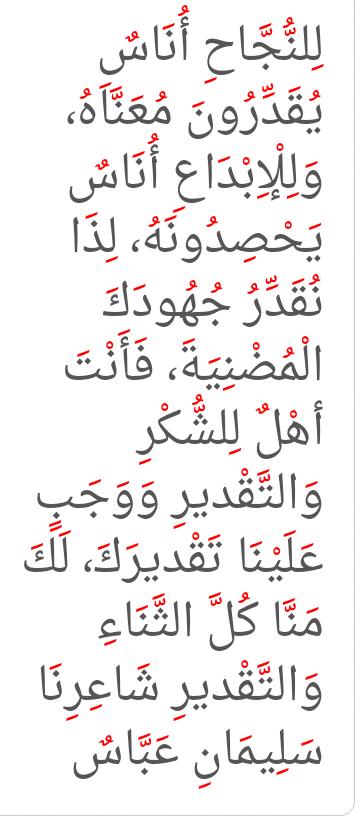 لِلنُّجَّاحِ أُنَاسٌ
يُقَدِّرُونَ مُعَنَّاَهُ،
وَلِلْإِبْدَاعِ أُنَاسٌ
يَحْصِدُونَهُ، لِذَا
نُقَدِّرُ جُهُودَكَ
الْمُضْنِيَةَ، فَأَنْتَ
أهْلٌ لِلشُّكْرِ
وَالتَّقْديرِ وَوَجَبٍ
عَلَيْنَا تَقْديرَكَ، لَكَ
مَنَّا كُلَّ الثَّنَاءِ
وَالتَّقْديرِ شَاعِرِنَا
سَلِيمَانِ عَبَّاسٌ